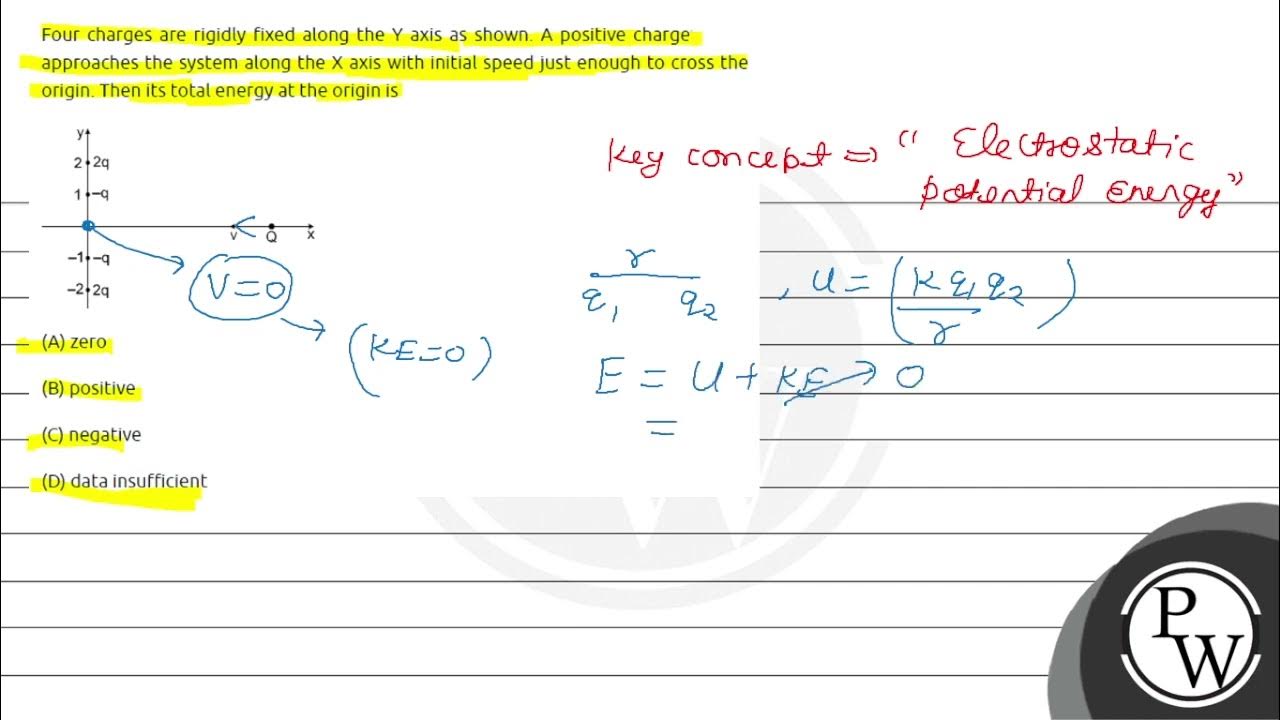 Four charges are rigidly fixed along the Y axis as shown. A positive charge
approaches the system along the X axis with initial speed just enough to cross the
origin. Then its total energy at the origin is
Key concept ⇒ “ Electrostatic
potential energy”
y
2 2q
1 −q
v Q x
−1 −q
−2 2q
V=0
(KE=0)
r
q₁ q₂ , u = (K q₁ q₂ / r)
E = U + KE → 0
=
(A) zero
(B) positive
(C) negative
(D) data insufficient
P
W